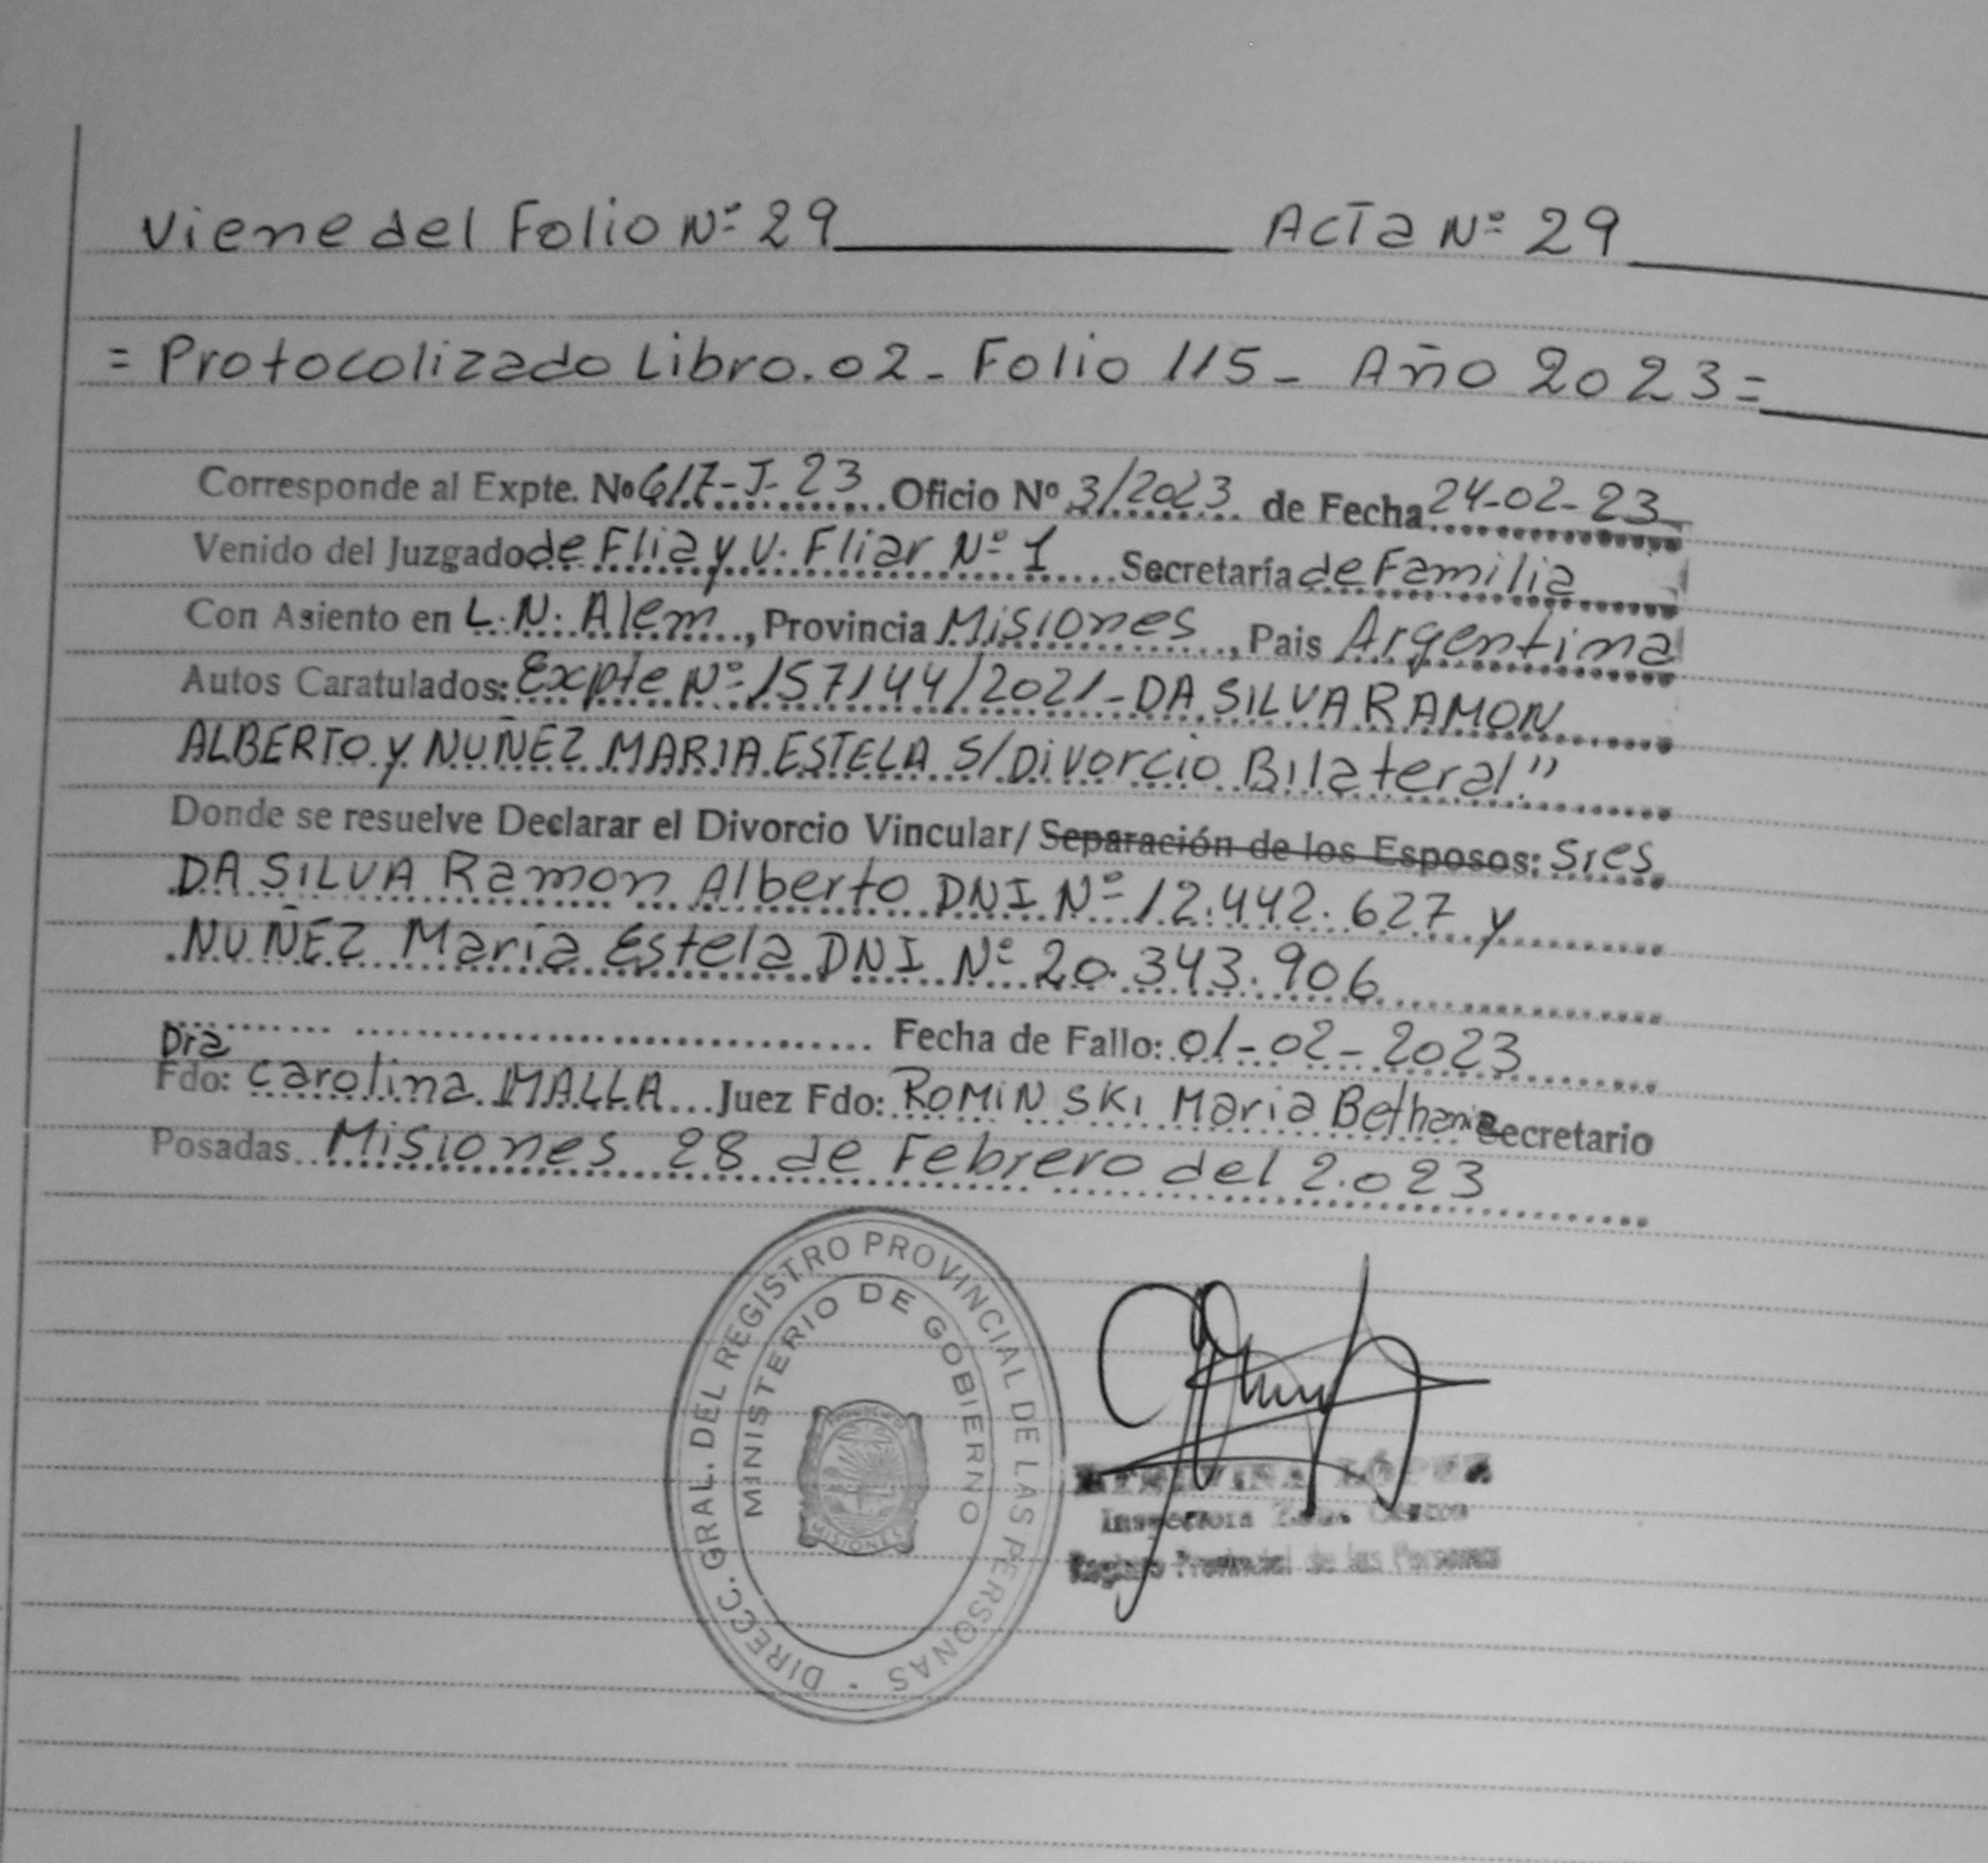 Viene del Folio Nº 29 Acta Nº 29
= Protocolizado Libro. 02 - Folio 115 - Año 2023 =
Corresponde al Expte. Nº 617-J-23 Oficio Nº 3/2023 de Fecha 24-02-23
Venido del Juzgado de Flia y V. Fliar Nº 1 Secretaría de Familia
Con Asiento en L.N. Alem, Provincia Misiones, Pais Argentina
Autos Caratulados: Expte Nº 157144/2021 - DA SILVA RAMON
ALBERTO y NUÑEZ MARIA ESTELA S/Divorcio Bilateral"
Donde se resuelve Declarar el Divorcio Vincular/ Separación de los Esposos: Sres
DA SILVA Ramon Alberto DNI Nº 12.442.627 y
NUÑEZ Maria Estela DNI Nº 20.343.906
Fecha de Fallo: 01-02-2023
Dra
Fdo: Carolina MALLA Juez Fdo: ROMINSKI Maria Bethania Secretario
Posadas Misiones 28 de Febrero del 2.023
DIRECC. GRAL. DEL REGISTRO PROVINCIAL DE LAS PERSONAS
MINISTERIO DE GOBIERNO
MISIONES
LÓPEZ
Inspectora Zona Centro
Registro Provincial de las Personas